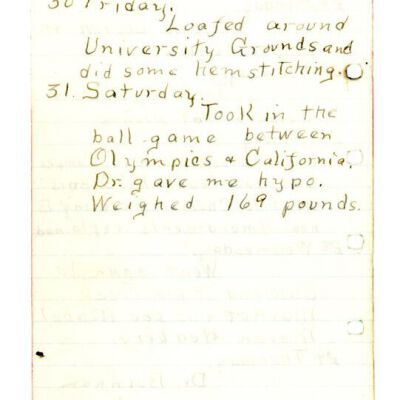 30 Friday.
Loafed around
University Grounds and
did some hemstitching.
31. Saturday.
Took in the
ball game between
Olympics & California.
Dr. gave me hypo.
Weighed 169 pounds.